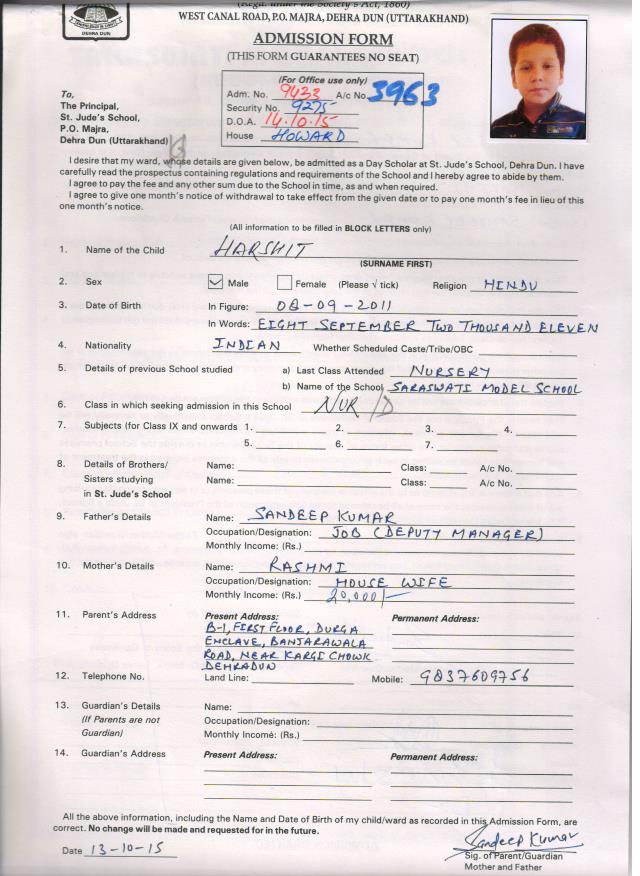 (Regd. under the Society's Act, 1860)
DEHRA DUN
WEST CANAL ROAD, P.O. MAJRA, DEHRA DUN (UTTARAKHAND)
ADMISSION FORM
(THIS FORM GUARANTEES NO SEAT)
(For Office use only)
Adm. No. 9433 A/c No. 3963
Security No. 9275
D.O.A. 14.10.15
House HOWARD
To,
The Principal,
St. Jude's School,
P.O. Majra,
Dehra Dun (Uttarakhand)
I desire that my ward, whose details are given below, be admitted as a Day Scholar at St. Jude's School, Dehra Dun. I have
carefully read the prospectus containing regulations and requirements of the School and I hereby agree to abide by them.
I agree to pay the fee and any other sum due to the School in time, as and when required.
I agree to give one month's notice of withdrawal to take effect from the given date or to pay one month's fee in lieu of this
one month's notice.
(All information to be filled in BLOCK LETTERS only)
1. Name of the Child HARSHIT
(SURNAME FIRST)
2. Sex Male Female (Please √ tick) Religion HINDU
3. Date of Birth In Figure: 08-09-2011
In Words: EIGHT SEPTEMBER TWO THOUSAND ELEVEN
4. Nationality INDIAN Whether Scheduled Caste/Tribe/OBC
5. Details of previous School studied a) Last Class Attended NURSERY
b) Name of the School SARASWATI MODEL SCHOOL
6. Class in which seeking admission in this School NUR/D
7. Subjects (for Class IX and onwards 1. 2. 3. 4.
5. 6. 7.
8. Details of Brothers/ Name: Class: A/c No.
Sisters studying Name: Class: A/c No.
in St. Jude's School
9. Father's Details Name: SANDEEP KUMAR
Occupation/Designation: JOB (DEPUTY MANAGER)
Monthly Income: (Rs.)
10. Mother's Details Name: RASHMI
Occupation/Designation: HOUSE WIFE
Monthly Income: (Rs.) 20,000/-
11. Parent's Address Present Address: Permanent Address:
B-1, FIRST FLOOR, DURGA
ENCLAVE, BANJARAWALA
ROAD, NEAR KARGI CHOWK
DEHRADUN
12. Telephone No. Land Line: Mobile: 9837609756
13. Guardian's Details Name:
(If Parents are not Occupation/Designation:
Guardian) Monthly Income: (Rs.)
14. Guardian's Address Present Address: Permanent Address:
All the above information, including the Name and Date of Birth of my child/ward as recorded in this Admission Form, are
correct. No change will be made and requested for in the future.
Sandeep Kumar
Date 13-10-15
Sig. of Parent/Guardian
Mother and Father